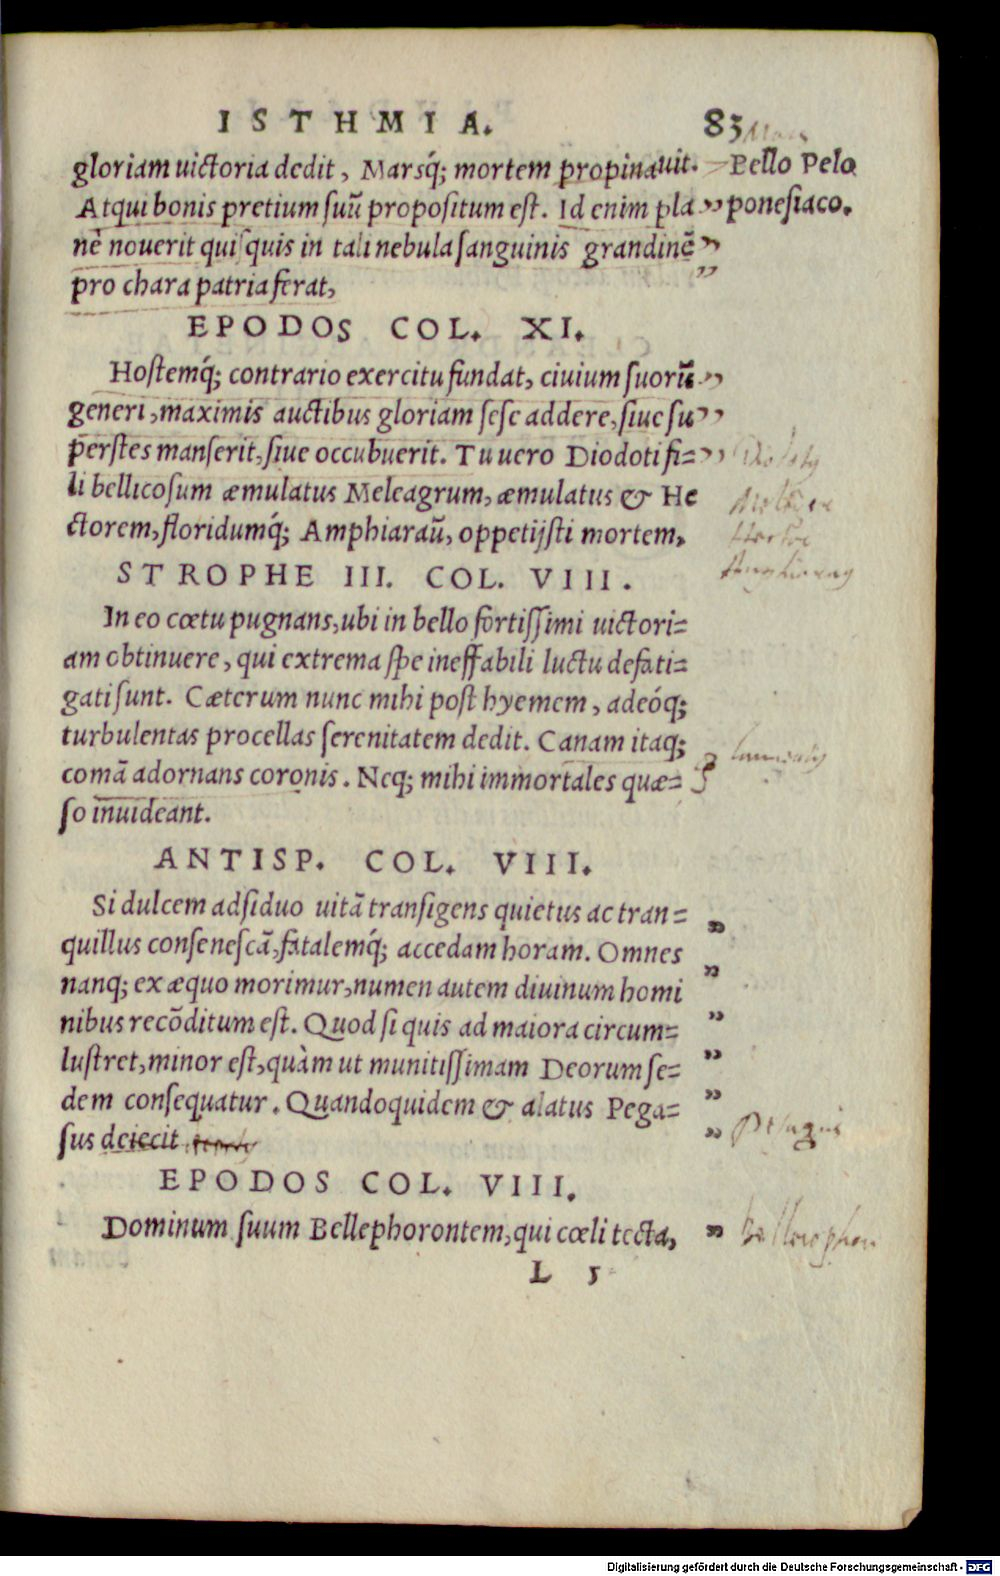 ISTHMIA. 83
gloriam uictoria dedit, Marsq́; mortem propinauit. Bello Pelo
Atqui bonis pretium suũ propositum est. Id enim pla „ ponesiaco.
nè nouerit quisquis in tali nebula sanguinis grandinẽ „
pro chara patria ferat, „
EPODOS COL. XI.
Hostemq́; contrario exercitu fundat, ciuium suorũ „
generi, maximis auctibus gloriam sese addere, siue su „
perstes manserit, siue occubuerit. Tu uero Diodoti fi= „
li bellicosum æmulatus Meleagrum, æmulatus & He
ctorem, floridumq́; Amphiaraũ, oppetijsti mortem,
STROPHE III. COL. VIII.
In eo cœtu pugnans, ubi in bello fortissimi uictori=
am obtinuere, qui extrema spe ineffabili luctu defati=
gati sunt. Cæterum nunc mihi post hyemem, adeóq;
turbulentas procellas serenitatem dedit. Canam itaq;
comã adornans coronis. Neq; mihi immortales quæ=
so inuideant.
ANTISP. COL. VIII.
Si dulcem adsiduo uitã transigens quietus ac tran= „
quillus consenescã, fatalemq́; accedam horam. Omnes
nanq; ex æquo morimur, numen autem diuinum homi „
nibus recõditum est. Quod si quis ad maiora circum= „
lustret, minor est, quàm ut munitissimam Deorum se= „
dem consequatur. Quandoquidem & alatus Pega= „
sus deiecit „ Pegasus
EPODOS COL. VIII.
Dominum suum Bellephorontem, qui cœli tecta, „ Bellerophon
L 5
Digitalisierung gefördert durch die Deutsche Forschungsgemeinschaft - DFG